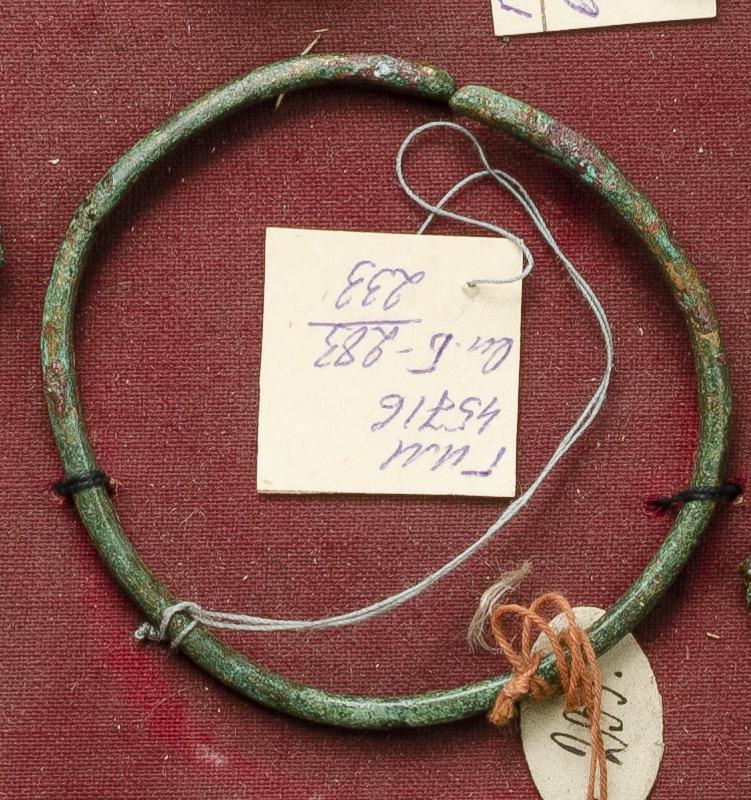 ГИМ
45716
оп. Б-283
233
233.